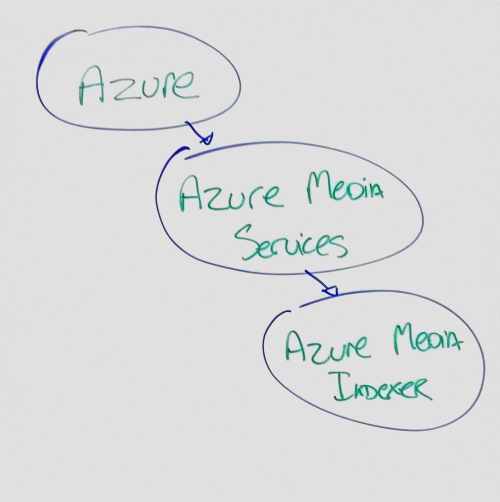 Azure
Azure Media
Services
Azure Media
Indexer